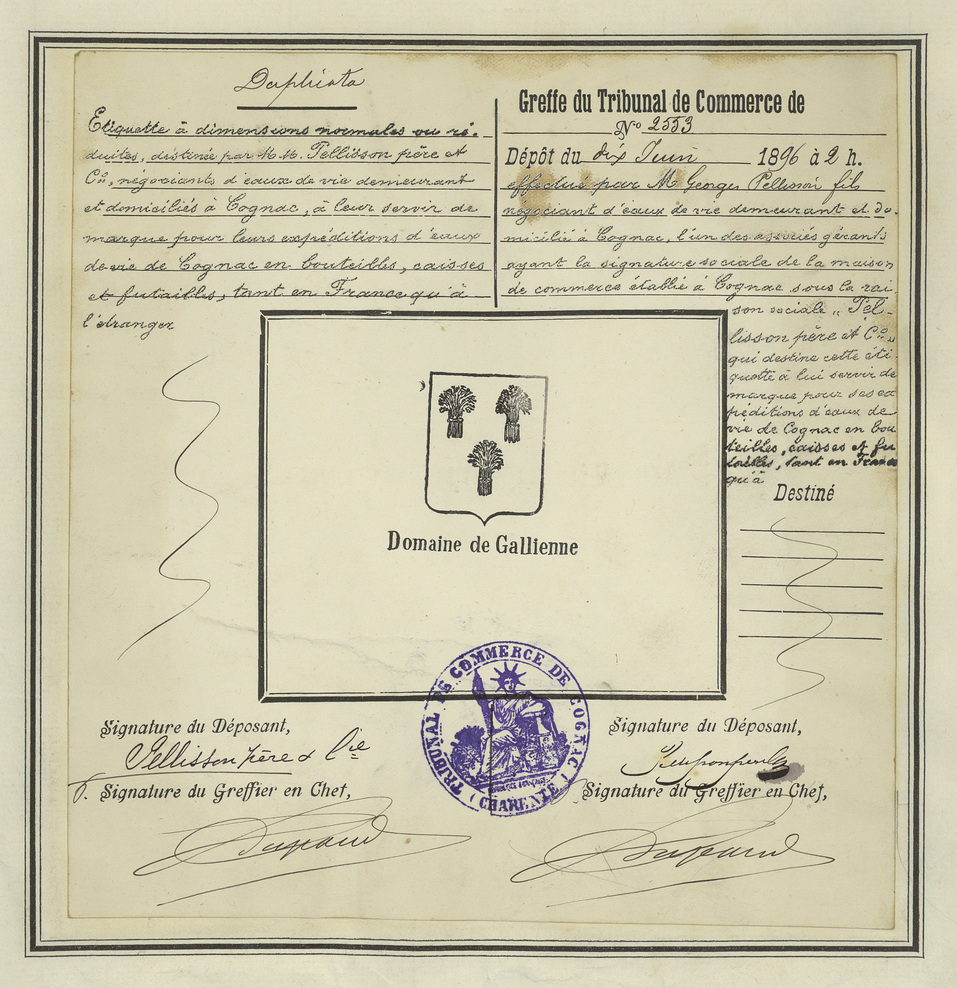 Duplicata
Etiquette à dimensions normales ou ré-
duites, destinée par M.M. Pellisson père et
Cie, négociants d'eaux de vie demeurant
et domiciliés à Cognac, à leur servir de
marque pour leurs expéditions d'eaux
de vie de Cognac en bouteilles, caisses
et futailles, tant en France qu'à
l'étranger
Greffe du Tribunal de Commerce de
No 2553
Dépôt du dix Juin 1896 à 2 h.
effectué par M. Georges Pellisson fils
négociant d'eaux de vie demeurant et do-
micilié à Cognac, l'un des associés gérants
ayant la signature sociale de la maison
de commerce établie à Cognac sous la rai
son sociale „ Pel-
lisson père et Cie „
qui destine cette éti-
quette à lui servir de
marque pour ses ex
péditions d'eaux de
vie de Cognac en bou
teilles, caisses et fu
tailles, tant en France
qu'à
Destiné
Domaine de Gallienne
TRIBUNAL DE COMMERCE DE COGNAC
(CHARENTE)
Signature du Déposant,
Pellisson père & Cie
Signature du Greffier en Chef,
Signature du Déposant,
Signature du Greffier en Chef,